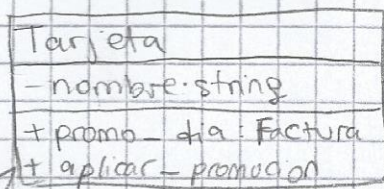 Tarjeta
-nombre:string
+ promo_dia: Factura
+ aplicar_promocion